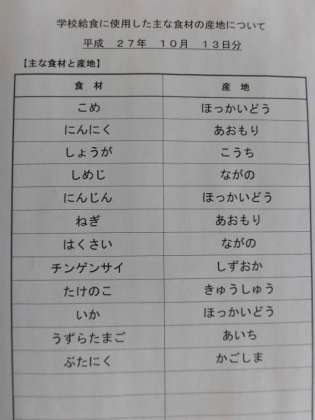 学校給食に使用した主な食材の産地について
平成 27年 10月 13日分
【主な食材と産地】
食 材 産 地
こめ ほっかいどう
にんにく あおもり
しょうが こうち
しめじ ながの
にんじん ほっかいどう
ねぎ あおもり
はくさい ながの
チンゲンサイ しずおか
たけのこ きゅうしゅう
いか ほっかいどう
うずらたまご あいち
ぶたにく かごしま